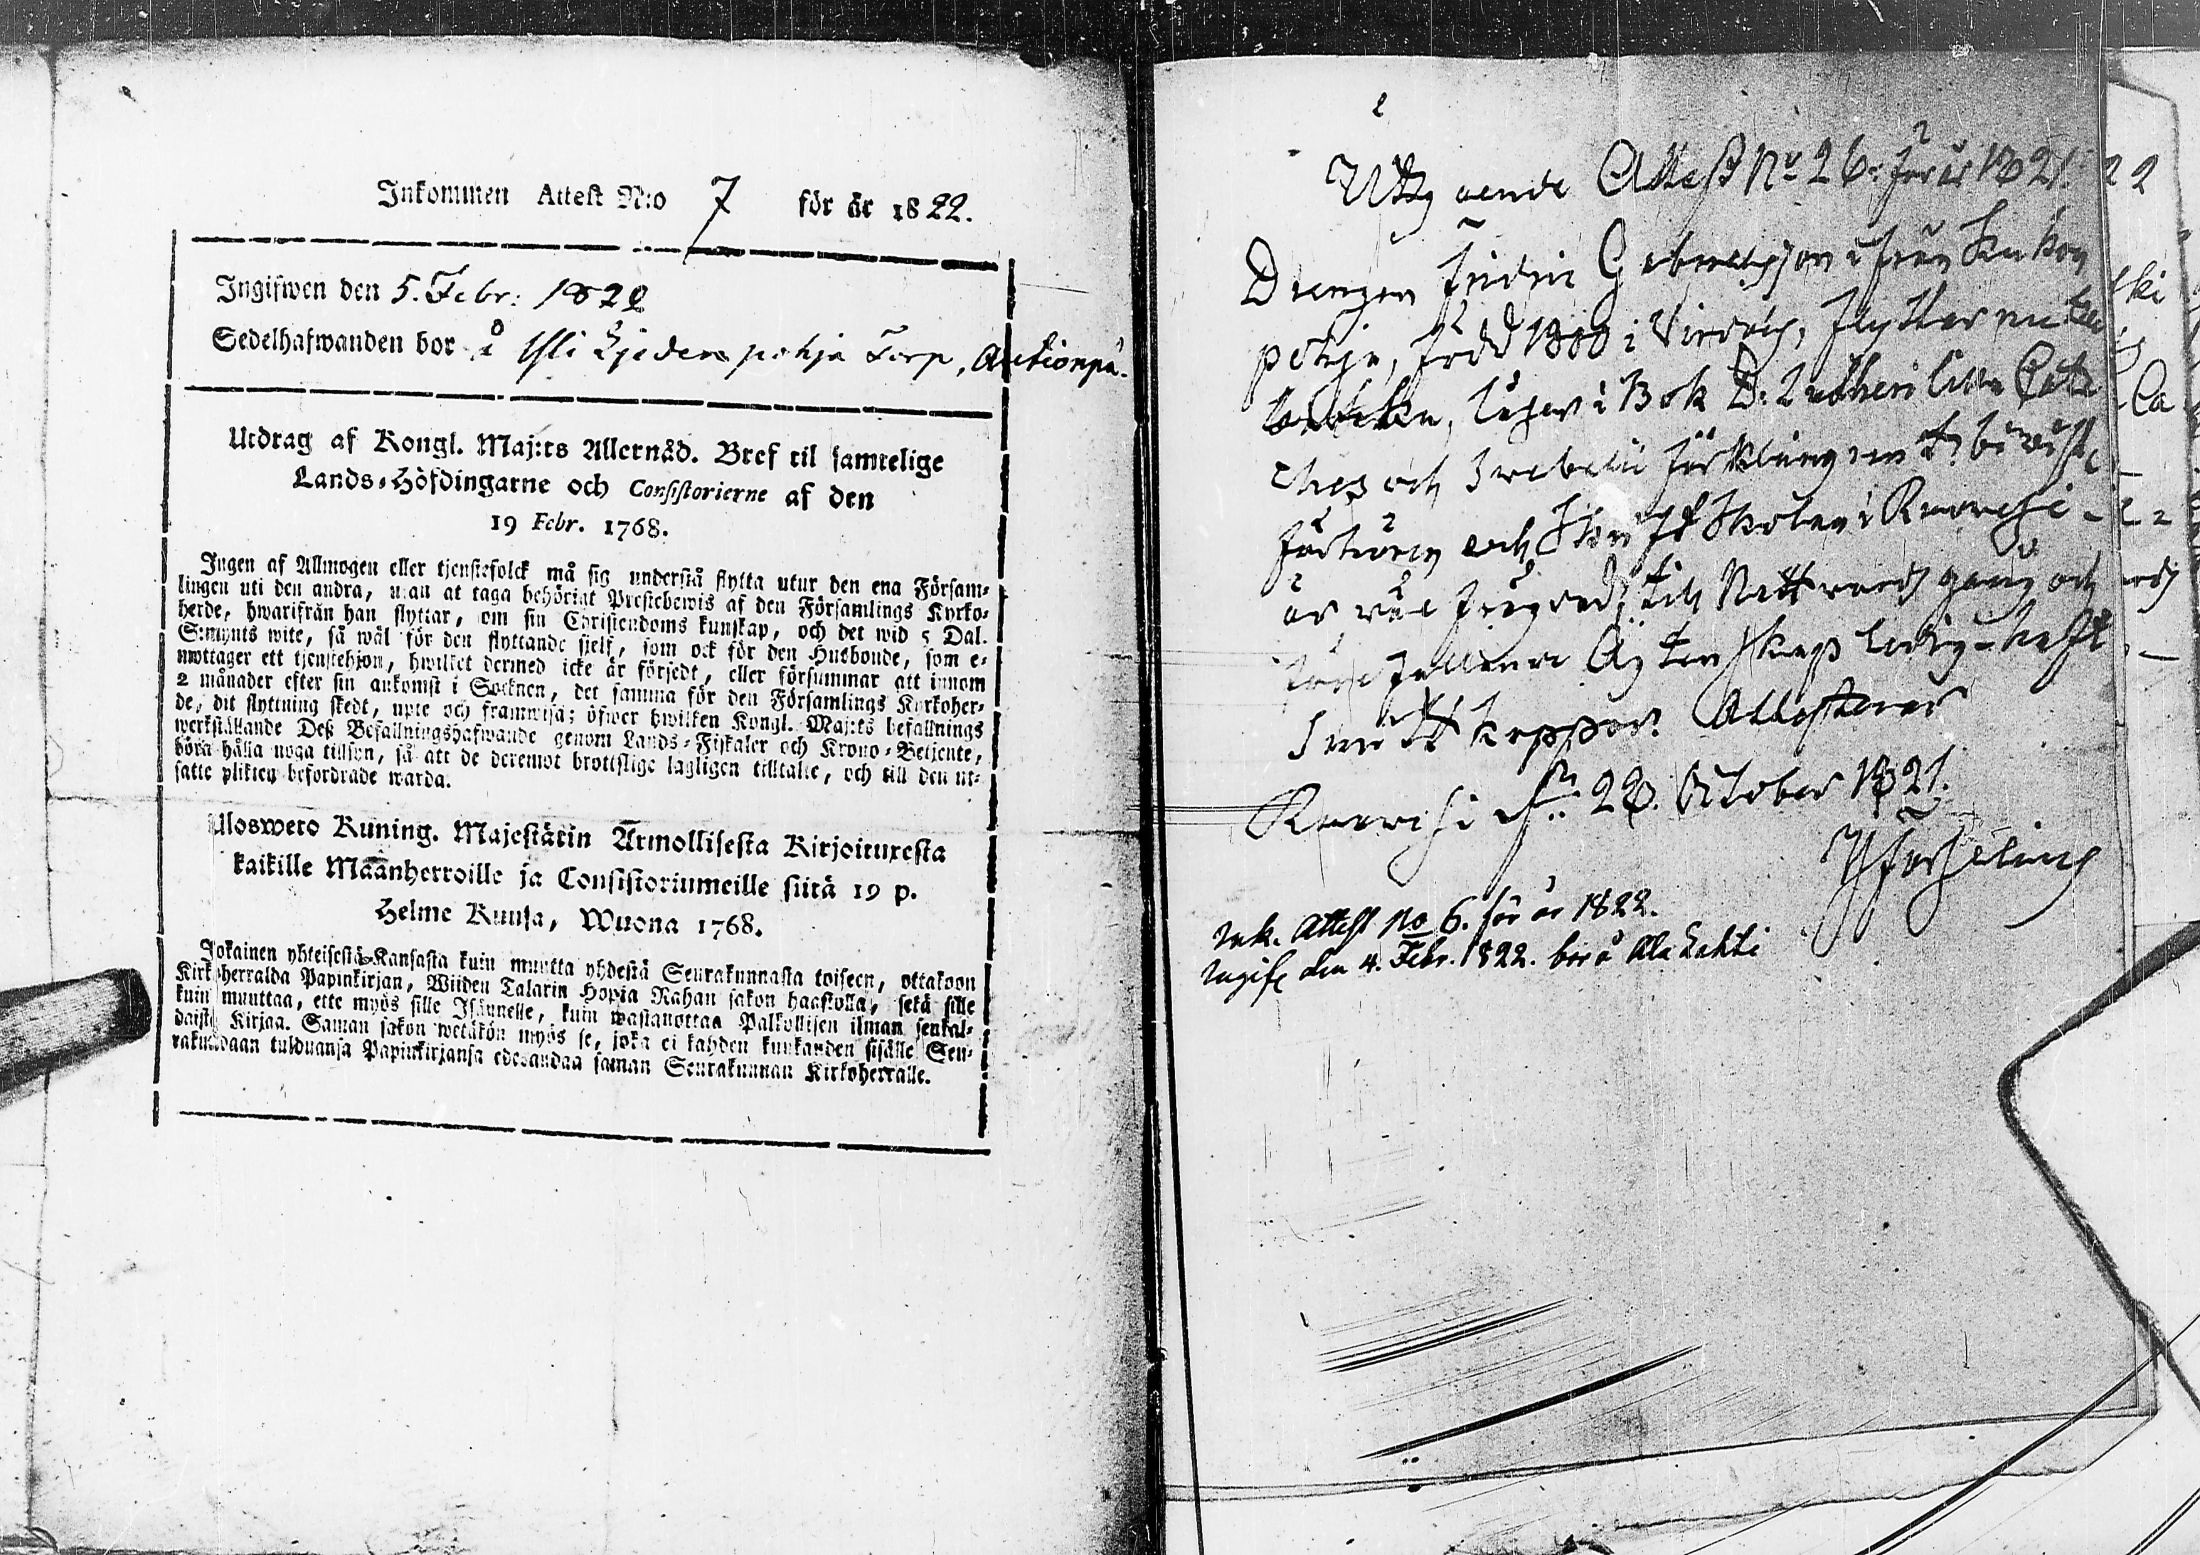 Inkommen Attest N:o 7 för år 1822.
Ingifwen den 5. Febr: 1822
Sedelhafwanden bor å Yli Hjeden pohja Torp, Auctionpå.
Utdrag af Kongl. Maj:ts Allernåd. Bref til samtelige
Lands-Höfdingarne och Consistorierne af den
19 Febr. 1768.
Ingen af Allmogen eller tjenstefolck må sig understå flytta utur den ena Försam-
lingen uti den andra, utan at taga behörigt Prestebewis af den Församlings Kyrko-
herde, hwarifrån han flyttar, om sin Christendoms kunskap, och det wid 5 Dal.
S:mynts wite, så wäl för den flyttande sjelf, som ock för den Husbonde, som e-
mottager ett tjenstehjon, hwilket dermed icke är försedt, eller försummar att innom
2 månader efter sin ankomst i Socknen, det samma för den Församlings Kyrkoher-
de, dit flyttning skedt, upte och framwisa; öfwer hwilken Kongl. Maj:ts befallnings
werkställande Deß Befallningshafwande genom Lands-Fiskaler och Krono-Betjente,
böra hålla noga tillsyn, så att de deremot brottslige lagligen tilltalte, och till den ut-
satte plikten befordrade warda.
Ulosweto Kuning. Majestätin Armollisesta Kirjoituxesta
kaikille Maanherroille ja Consistoriumeille siitä 19 p.
Helme Kuusa, Wuona 1768.
Jokainen yhteisestä Kansasta kuin muutta yhdestä Seurakunnasta toiseen, ottakoon
Kirkoherralda Papinkirjan, Wiiden Talarin Hopia Rahan sakon haastolla, sekä sille
kuin muuttaa, ette myös sille Isännelle, kuin wastanottaa Palkollisen ilman senkal-
daista Kirjaa. Saman sakon wetäkön myös se, joka ei kahden kuukauden sisälle Seu-
rakundaan tulduansa Papinkirjansa edesandaa saman Seurakunnan Kirkoherralle.
Utgående Attest No 26. för år 1821.
Drengen Gabrielsson ifrån
pohja, född 1800 i Virdois, flyttar nu
läser i Bok D: Lutheri lilla Cate
ches och
förhören och Skrift Skolan i Ruovesi
är väl frägdad, till Nattvards gång och
Äktenskap ledig - haft
koppor. Attesterar
Ruovesi d. 28. October 1821.
Ink. Attest No 6. för år 1822.
Ingif. den 4. Febr. 1822. bor å Ala Lahti